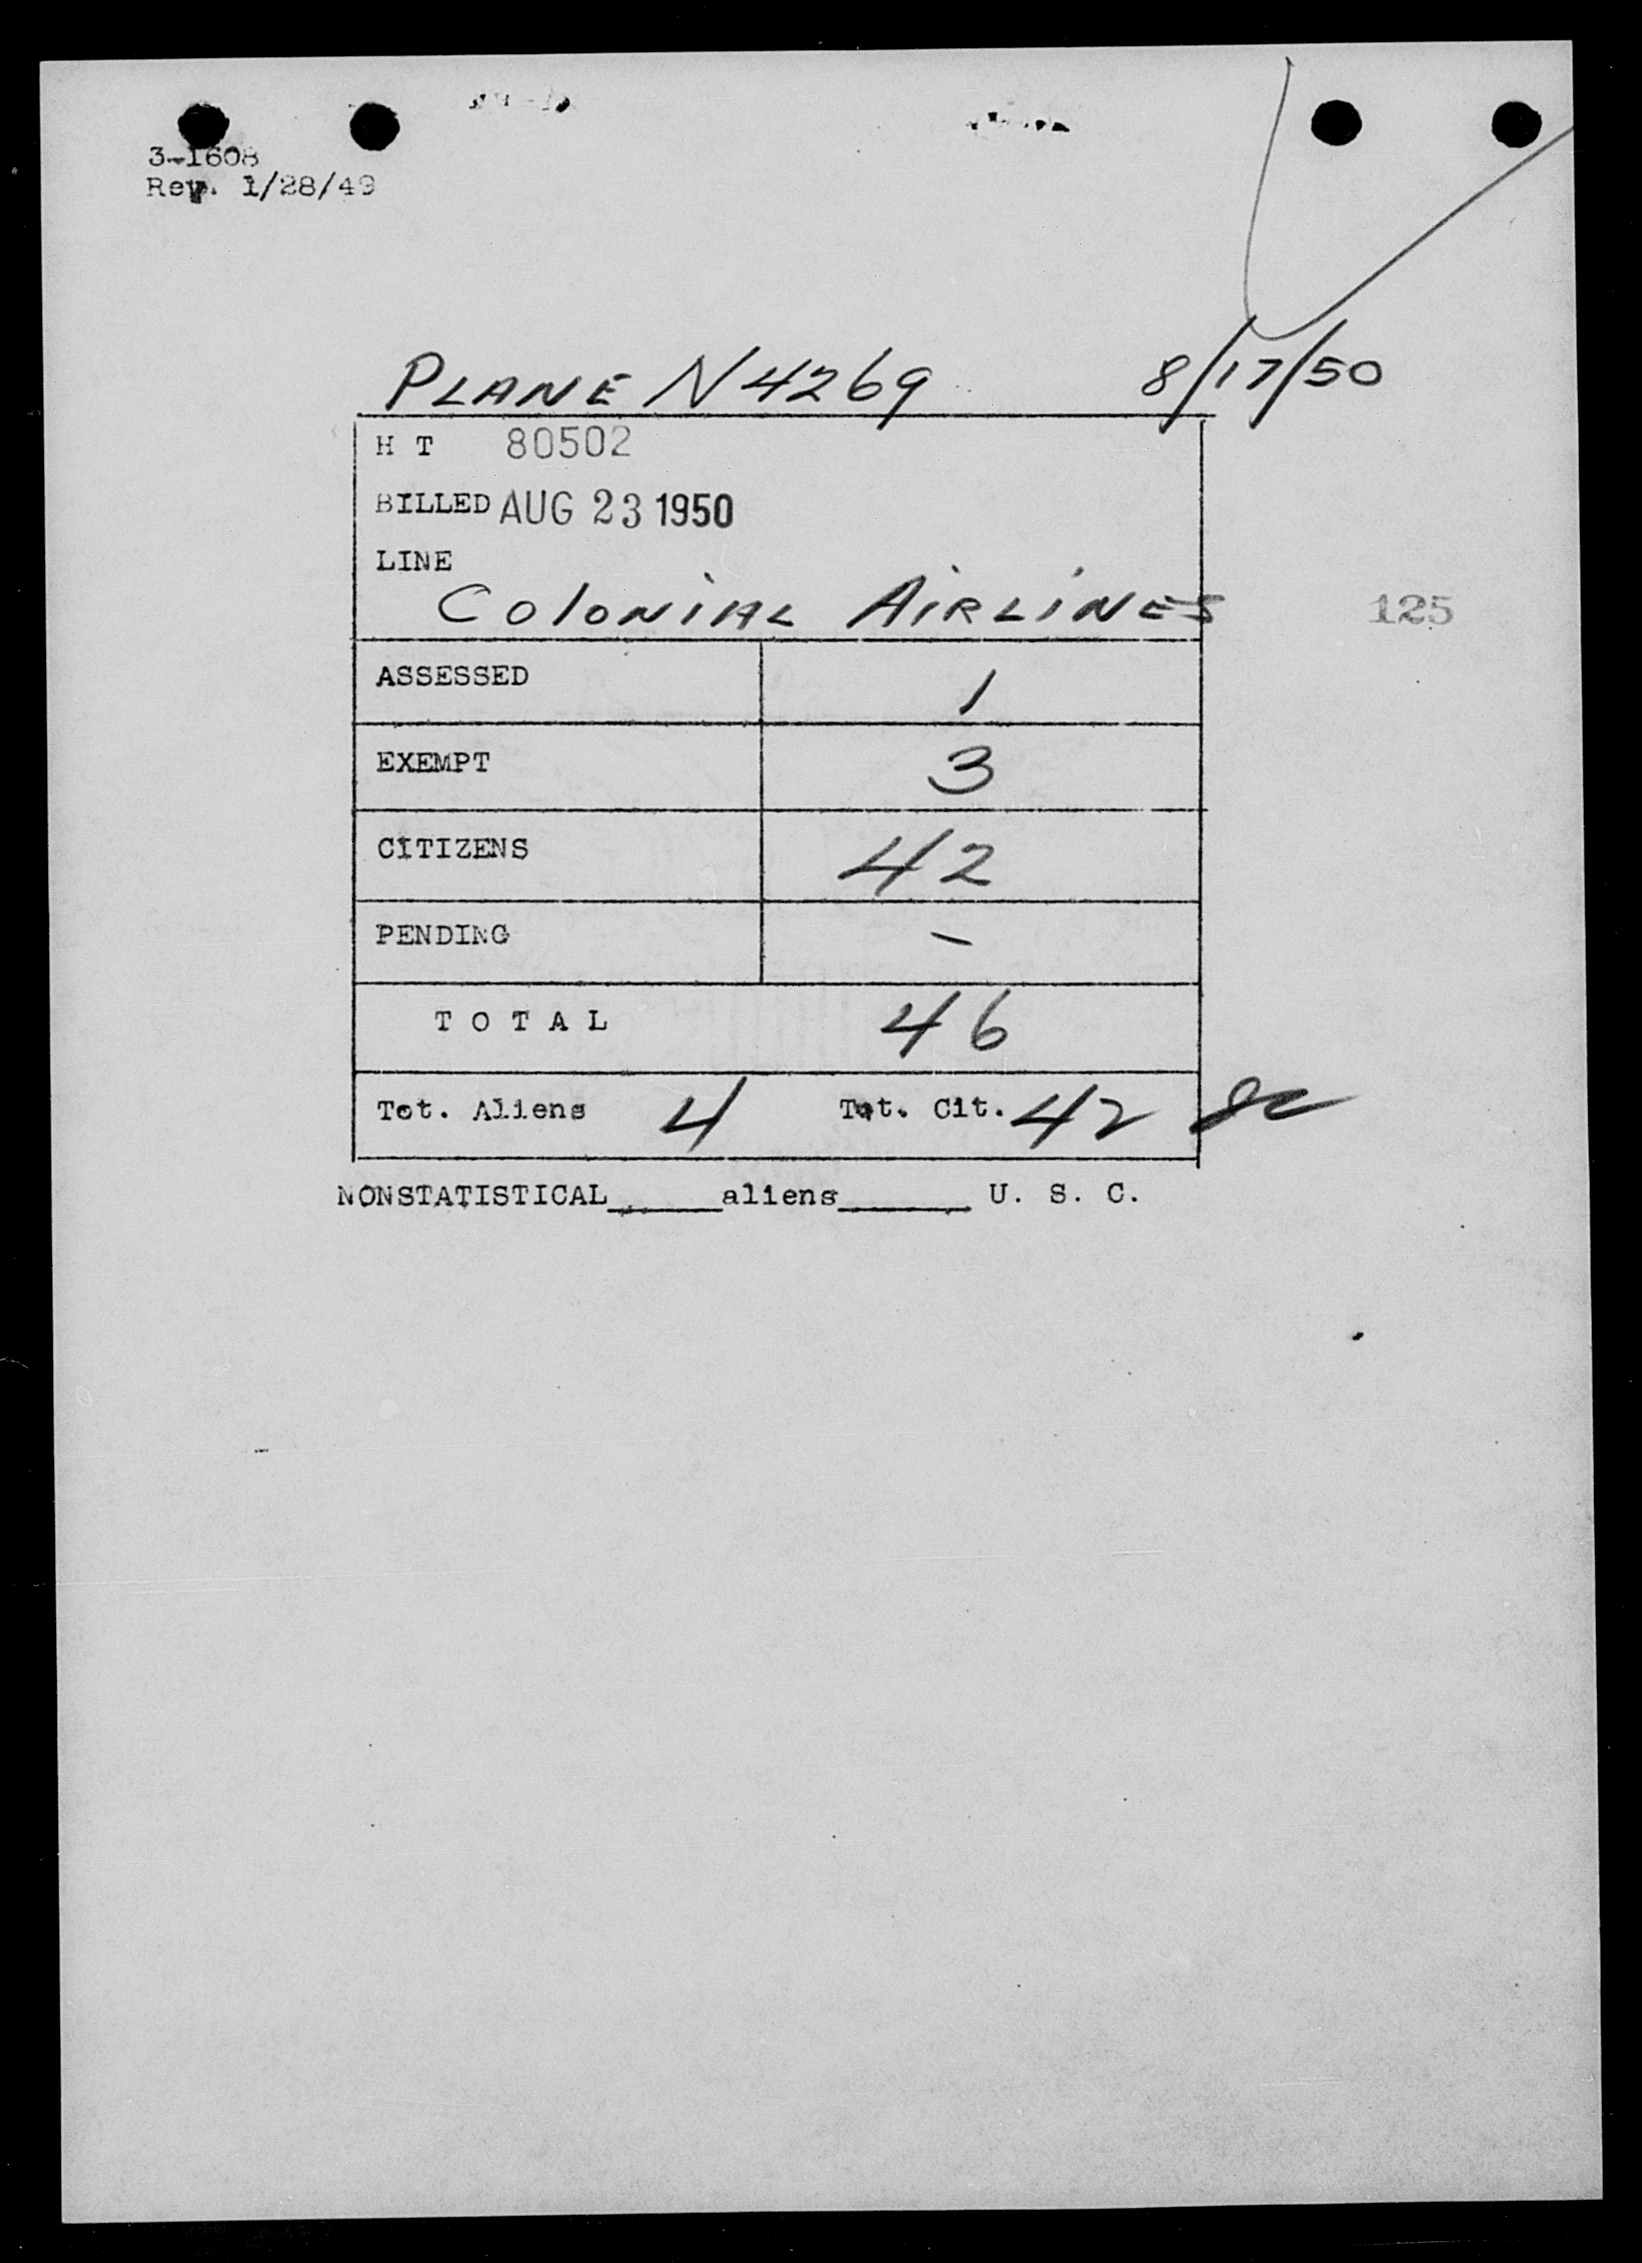 3-1608
Rev. 1/28/49
PLANE N4269 8/17/50
H T 80502
BILLED AUG 23 1950
LINE
Colonial Airlines
125
ASSESSED 1
EXEMPT 3
CITIZENS 42
PENDING -
T O T A L 46
Tot. Aliens 4 Tot. Cit. 42
NONSTATISTICAL_____aliens______ U. S. C.